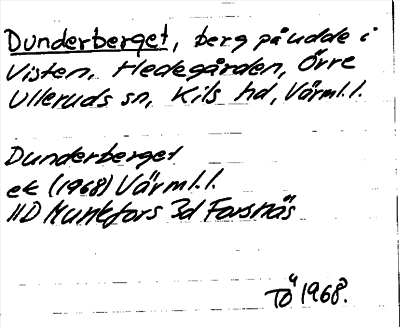 Dunderberget, berg på udde i
Visten, Hedegården, Övre
Ulleruds sn, Kils hd, Värml.l.
Dunderberget
ek (1968) Värml.l.
11D Munkfors 3d Forsnäs
TÖ 1968.